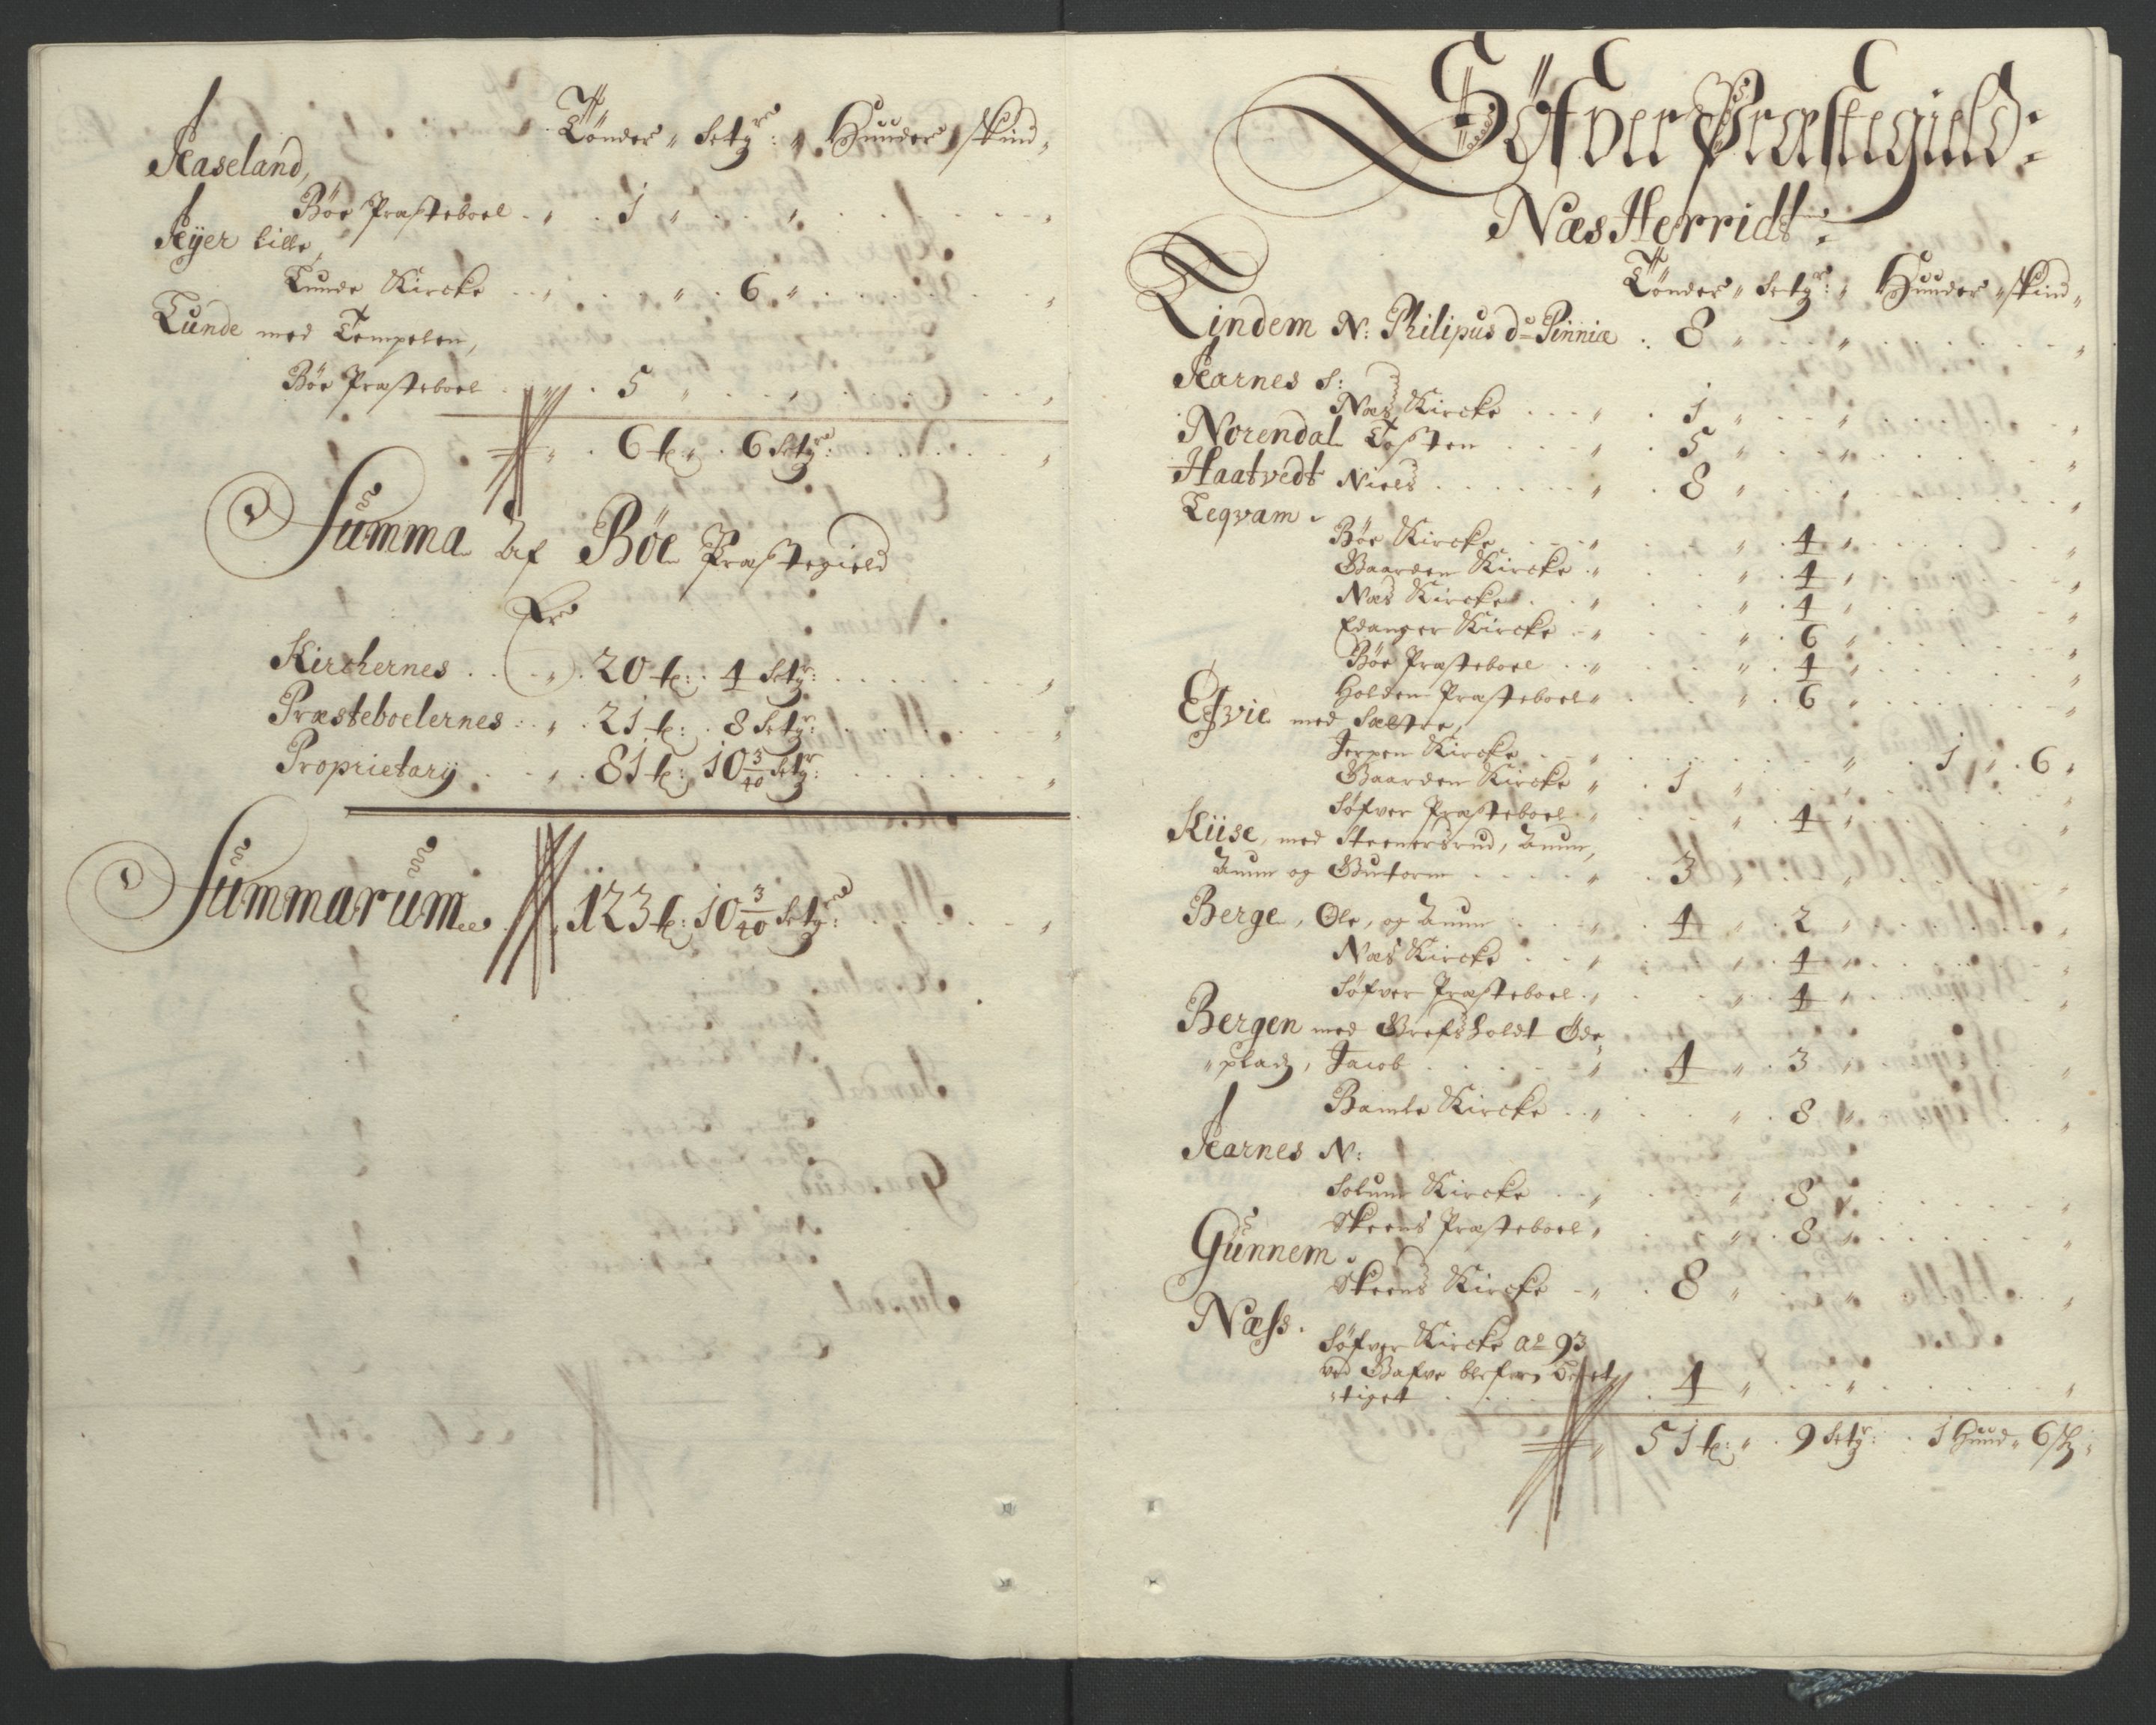 Tønder „ Setgr: „ Huuder „ skind „
Aaseland,
Bøe Præsteboel „ 1 „ „ „
Aÿer lille,
Lunde Kircke „ „ 6 „ „
Lunde med Tempelen,
Bøe Præsteboel „ 5 „ „ „
„ 6 t: „ 6 Setgr: „
Summa Af Bøe Præstegield
Er
Kirchernes „ 20 t: 4 Setgr: „
Præsteboelernes „ 21 t: 8 Setgr: „
Proprietarÿ „ 81 t: 10 3/40 Setgr: „
Summarum „ 123 t: 10 3/40 Setgr: „
Söfver Præstegield:
Næs Herridt:
Tønder „ Setgr: „ Huuder „ skind „
Lindem N: Philipus d: Pinniæ 8 „ „ „
Aarnes S:
Næs Kircke „ 1 „ „ „
Norendal Tosten „ 5 „ „ „
Haatvedt Niels „ 8 „ „ „
Teqvam
Bøe Kircke „ „ 4 „ „
Gaarden Kircke „ „ 4 „ „
Næs Kircke „ „ 4 „ „
Edanger Kircke „ „ 6 „ „
Bøe Præsteboel „ „ 4 „ „
Holden Præsteboel „ „ 6 „ „
Efvie med Sæltre,
Jerpen Kircke „ „ 1 „ 6 „
Gaarden Kircke „ 1 „ „ „
Søfver Præsteboel „ „ 4 „ „
Kiise, med Steenersrud, Anun,
Anun og Guttorm „ 3 „ „ „
Berge, Ole, og Anun „ 4 „ 2 „ „
Næs Kircke „ „ 4 „ „
Søfver Præsteboel „ „ 4 „ „
Bergen med Grefsholdt Øde
„ pladz, Jacob „ 4 „ 3 „ „
Bamle Kircke „ „ 8 „ „
Aarnes N:
Solum Kircke „ „ 8 „ „
Skeens Præsteboel „ „ 8 „ „
Gunnem
Skeens Kircke „ 8 „ „ „
Næss.
Søfver Kircke Ao 93
ved Gafve blefven
tiget 4 „ „ „
„ 51 t: „ 9 Setgr: 1 Huud „ 6 sk: „